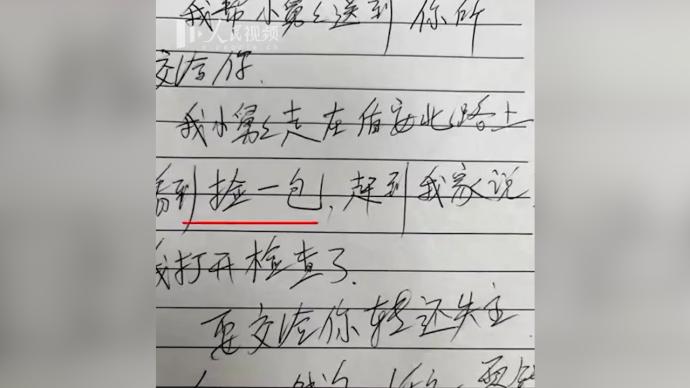 人民视频
我帮小舅送到你所
交给你.
我小舅走在盾安北路上
看到捡一包,赶到我家说.
我打开检查了.
要交给你转还失主